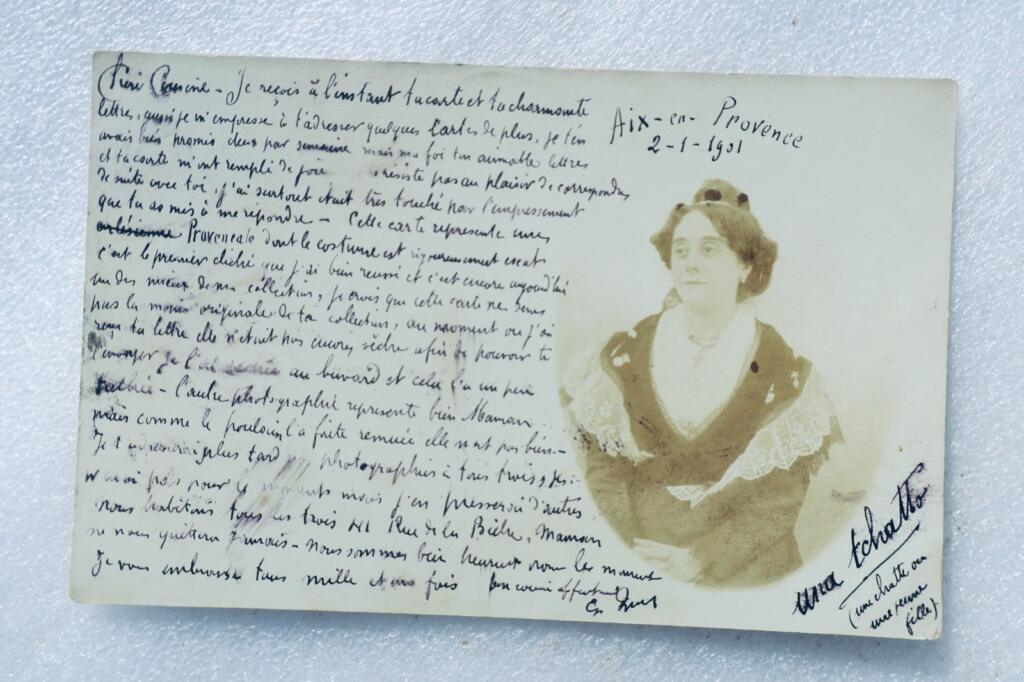 Chère Cousine - Je reçois à l'instant ta carte et ta charmante
lettre, aussi je m'empresse à t'adresser quelques Cartes de plus, je t'en
avais bien promis deux par semaine mais ma foi ton aimable lettre
et ta carte m'ont rempli de joie résiste pas au plaisir de correspondre
de suite avec toi, j'ai surtout était très touché par l'empressement
que tu as mis à me répondre - Cette carte represente une
arlésienne Provençale dont le costume est rigoureusement exact
c'est le premier cliché que j'ai bien reussi et c'est encore aujourd'hui
un des mieux de ma collection, je crois que cette carte ne sera
pas la moins originale de ta collection, au moment ou j'ai
reçu ta lettre elle n'était pas encore sèche afin de pouvoir te
l'envoyer je l'ai sechée au buvard et cela l'a un peu
- l'autre photographie represente bien Maman
mais comme le poulain l'a faite remuée elle n'est pas bien -
Je t'adresserai plus tard photographies à tous trois, je
n'en ai pas pour le moment mais j'en presserai d'autres
nous habitons tous les trois 41 Rue de la Maman
ne nous quittera jamais - nous sommes bien heureux pour le moment
Je vous embrasse tous mille et une fois ton cousin affectionné
Aix-en-Provence
2-1-1901
una tchatto
(une chatte ou
une jeune
fille)